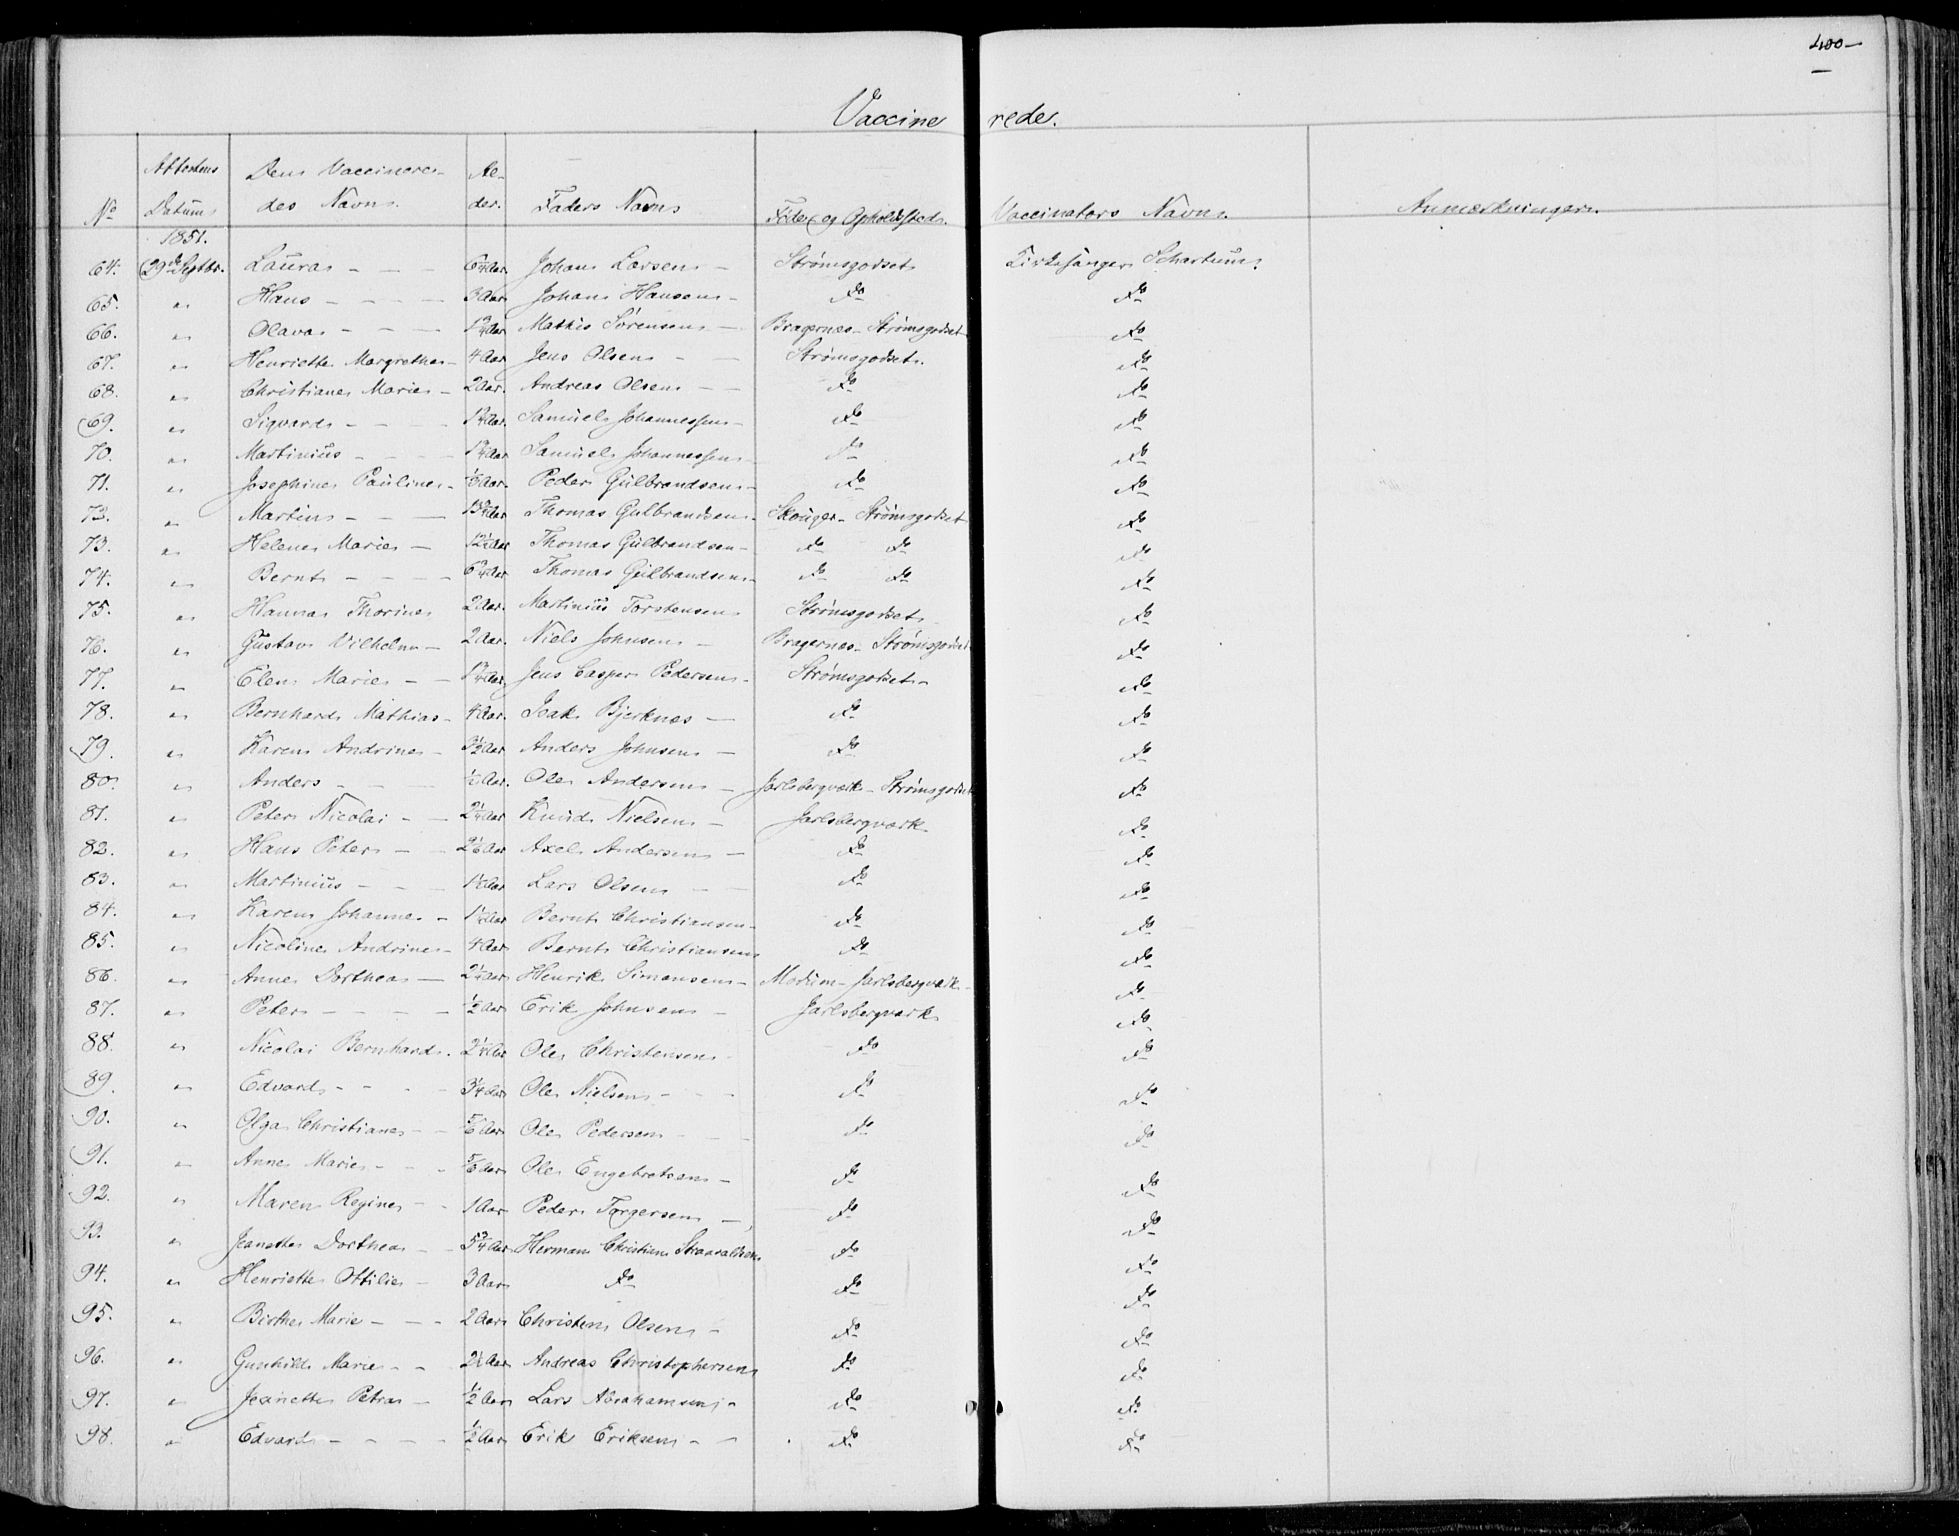 400 —
Vaccinerede.
No Attestens Datum Den Vaccineredes Navn. Alder. Faders Navn Føde og Opholdssted. Vaccinators Navn. Anmærkninger.
1851.
64. 29de Septbr. Laura - - - Aar Johan Larsen - Strømsgodset Kirkesanger Schartum.
65. " Hans - - - 3 Aar Johan Hansen - Do Do
66. " Olava - - - 1 3/4 Aar Mathis Sørensen - Bragernes - Strømsgodset Do
67. " Henriette Margrethe - 4 Aar Jens Olsen - - Strømsgodset. Do
68. " Christiane Marie - 2 Aar. Andreas Olsen - - Do Do
69. " Sigvard - - - Aar Samuel Johannessen - Do Do
70. " Martinius - - - Aar Samuel Johannessen - Do Do
71. " Josephine Pauline - Aar. Peder Gulbrandsen - Do Do
72. " Martin - - - Aar Thomas Gulbrandsen - Skouger - Strømsgodset Do
73. " Helene Marie - Aar Thomas Gulbrandsen - Do Do Do
74. " Bernt - - - Aar Thomas Gulbrandsen - Do Do Do
75. " Hanna Thorine 2 Aar. Martinius Torstensen Strømsgodset - Do
76. " Gustav Vilhelm - 2 Aar. Niels Johnsen - Bragernes - Strømsgodset Do
77. " Elen Marie - - Aar Jens Casper Pedersen - Strømsgodset - Do
78. " Bernhard Mathias - 4 Aar. Isak Bjerknes - Do Do
79. " Karen Andrine - 3 1/2 Aar Anders Johnsen - Do Do
80. " Anders - - - Aar. Ole Andersen - Jarlsbergværk - Strømsgodset Do
81. " Peter Nicolai - - 2 1/4 Aar Knud Nielsen - Jarlsbergværk Do
82. " Hans Peter - - 2 1/6 Aar Axel Andersen - Do Do
83. " Martinius - - - Aar Lars Olsen - - Do Do
84. " Karen Johanne - Aar Bernt Christiansen - Do Do
85. " Nicoline Andrine - 4 Aar Bernt Christiansen Do Do
86. " Anne Dorthea - 2 1/4 Aar Henrik Simonsen - Modum - Jarlsbergværk - Do
87. " Peter - - - - 1/2 Aar Erik Johnsen - Jarlsbergværk Do
88. " Nicolai Bernhard. - 2 1/4 Aar Ole Christensen - Do Do
89. " Edvard - - - 3/4 Aar Ole Nielsen - - - Do Do
90. " Olga Christiane - - 5/6 Aar Ole Pedersen - - - Do Do
91. " Anne Marie - - - 5/6 Aar Ole Engebretsen - Do Do
92. " Maren Regine - - 1 Aar Peder Torgersen - Do Do
93. " Jeanette Dorthea - - 5 3/4 Aar Herman Christian Do Do
94. " Henriette Ottilie - 3 Aar Do Do Do
95. " Birthe Marie - - - 2 Aar Christen Olsen - Do Do
96. " Gunhild Marie - - 2 1/2 Aar Andreas Christophersen Do Do
97. " Jeanette Petra - 1/2 Aar Lars Abrahamsen - Do Do
98. " Edvard - - - - 1/2 Aar Erik Eriksen - - Do Do